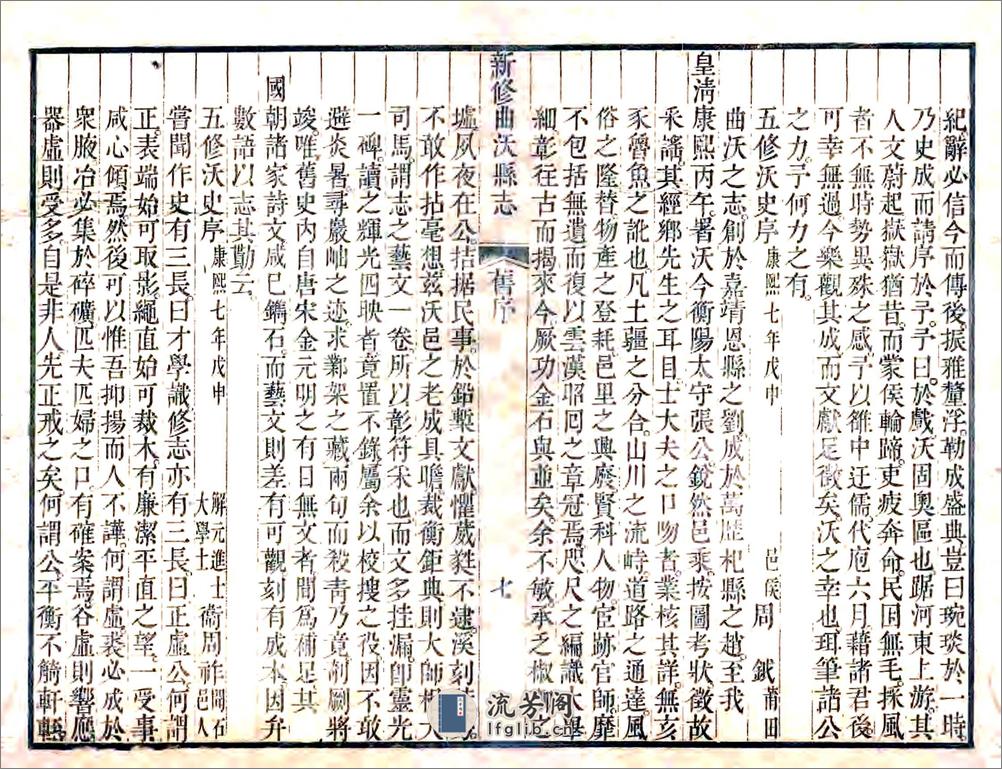 紀辭必信今而傳後振雅釐浮勒成盛典豈曰琬琰於一時
乃史成而請序於予予曰於戲沃固奧區也踞河東上游其
人文蔚起嶽嶽猶昔而蒙侯輪蹄吏疲奔命民困無毛採風
者不無時勢異殊之感予以雒中迂儒代庖六月藉諸君後
可幸無過今樂觀其成而文獻足徵矣沃之幸也珥筆諸公
之力予何力之有
五修沃史序 康熙七年戊申 邑侯周鉞莆田
曲沃之志創於嘉靖恩縣之劉成於萬歷杞縣之趙至我
皇清康熙丙午署沃今衡陽太守張公銳然邑乘按圖考狀徵故
采謠其經鄉先生之耳目士大夫之口吻者業核其詳無亥
豕魯魚之訛也凡土疆之分合山川之流峙道路之通達風
俗之隆替物產之登耗邑里之興廢賢科人物宦跡官師靡
不包括無遺而復以雲漢昭回之章冠焉咫尺之編識大舉
細彰往古而揭來今厥功金石與並矣余不敏承之椒
新修曲沃縣志 舊序 七
墟夙夜在公拮据民事於鉛槧文獻懼葳蕤不逮溪刻
不敢作拈毫想茲沃邑之老成具瞻裁衡鉅典則大師
司馬謂志之藝文一卷所以彰符采也而文多挂漏卽靈光
一碑讀之輝光四映者竟置不錄屬余以校搜之役因不敢
避炎暑尋巖岫之迹求鄴架之藏兩旬而殺靑乃竟剞劂將
竣唯舊史內自唐宋金元明之有目無文者間爲補足其
國朝諸家詩文咸已鐫石而藝文則差有可觀刻有成本因弁
數語以志其勤云
五修沃史序 康熙七年戊申 解元進士大學士 衞周祚 聞石邑人
嘗聞作史有三長曰才學識修志亦有三長曰正虛公何謂
正表端始可取影繩直始可裁木有廉潔平直之望一受事
咸心傾焉然後可以惟吾抑揚而人不譁何謂虛裘必成於
衆腋冶必集於碎礦匹夫匹婦之口有確案焉谷虛則響應
器虛則受多自是非人先正戒之矣何謂公平衡不觭軒輊
流芳阁
lfglib.cn